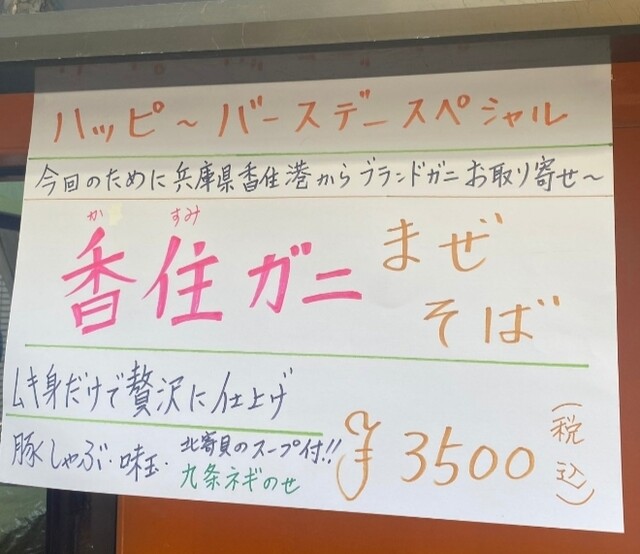 ハッピ～バースデースペシャル
今回のために兵庫県香住港からブランドガニお取り寄せ～
か すみ
香住ガニ
まぜ
そば
ムキ身だけで贅沢に仕上げ
豚しゃぶ・味玉・
北寄貝のスープ付!!
九条ネギのせ
¥3500(税込)